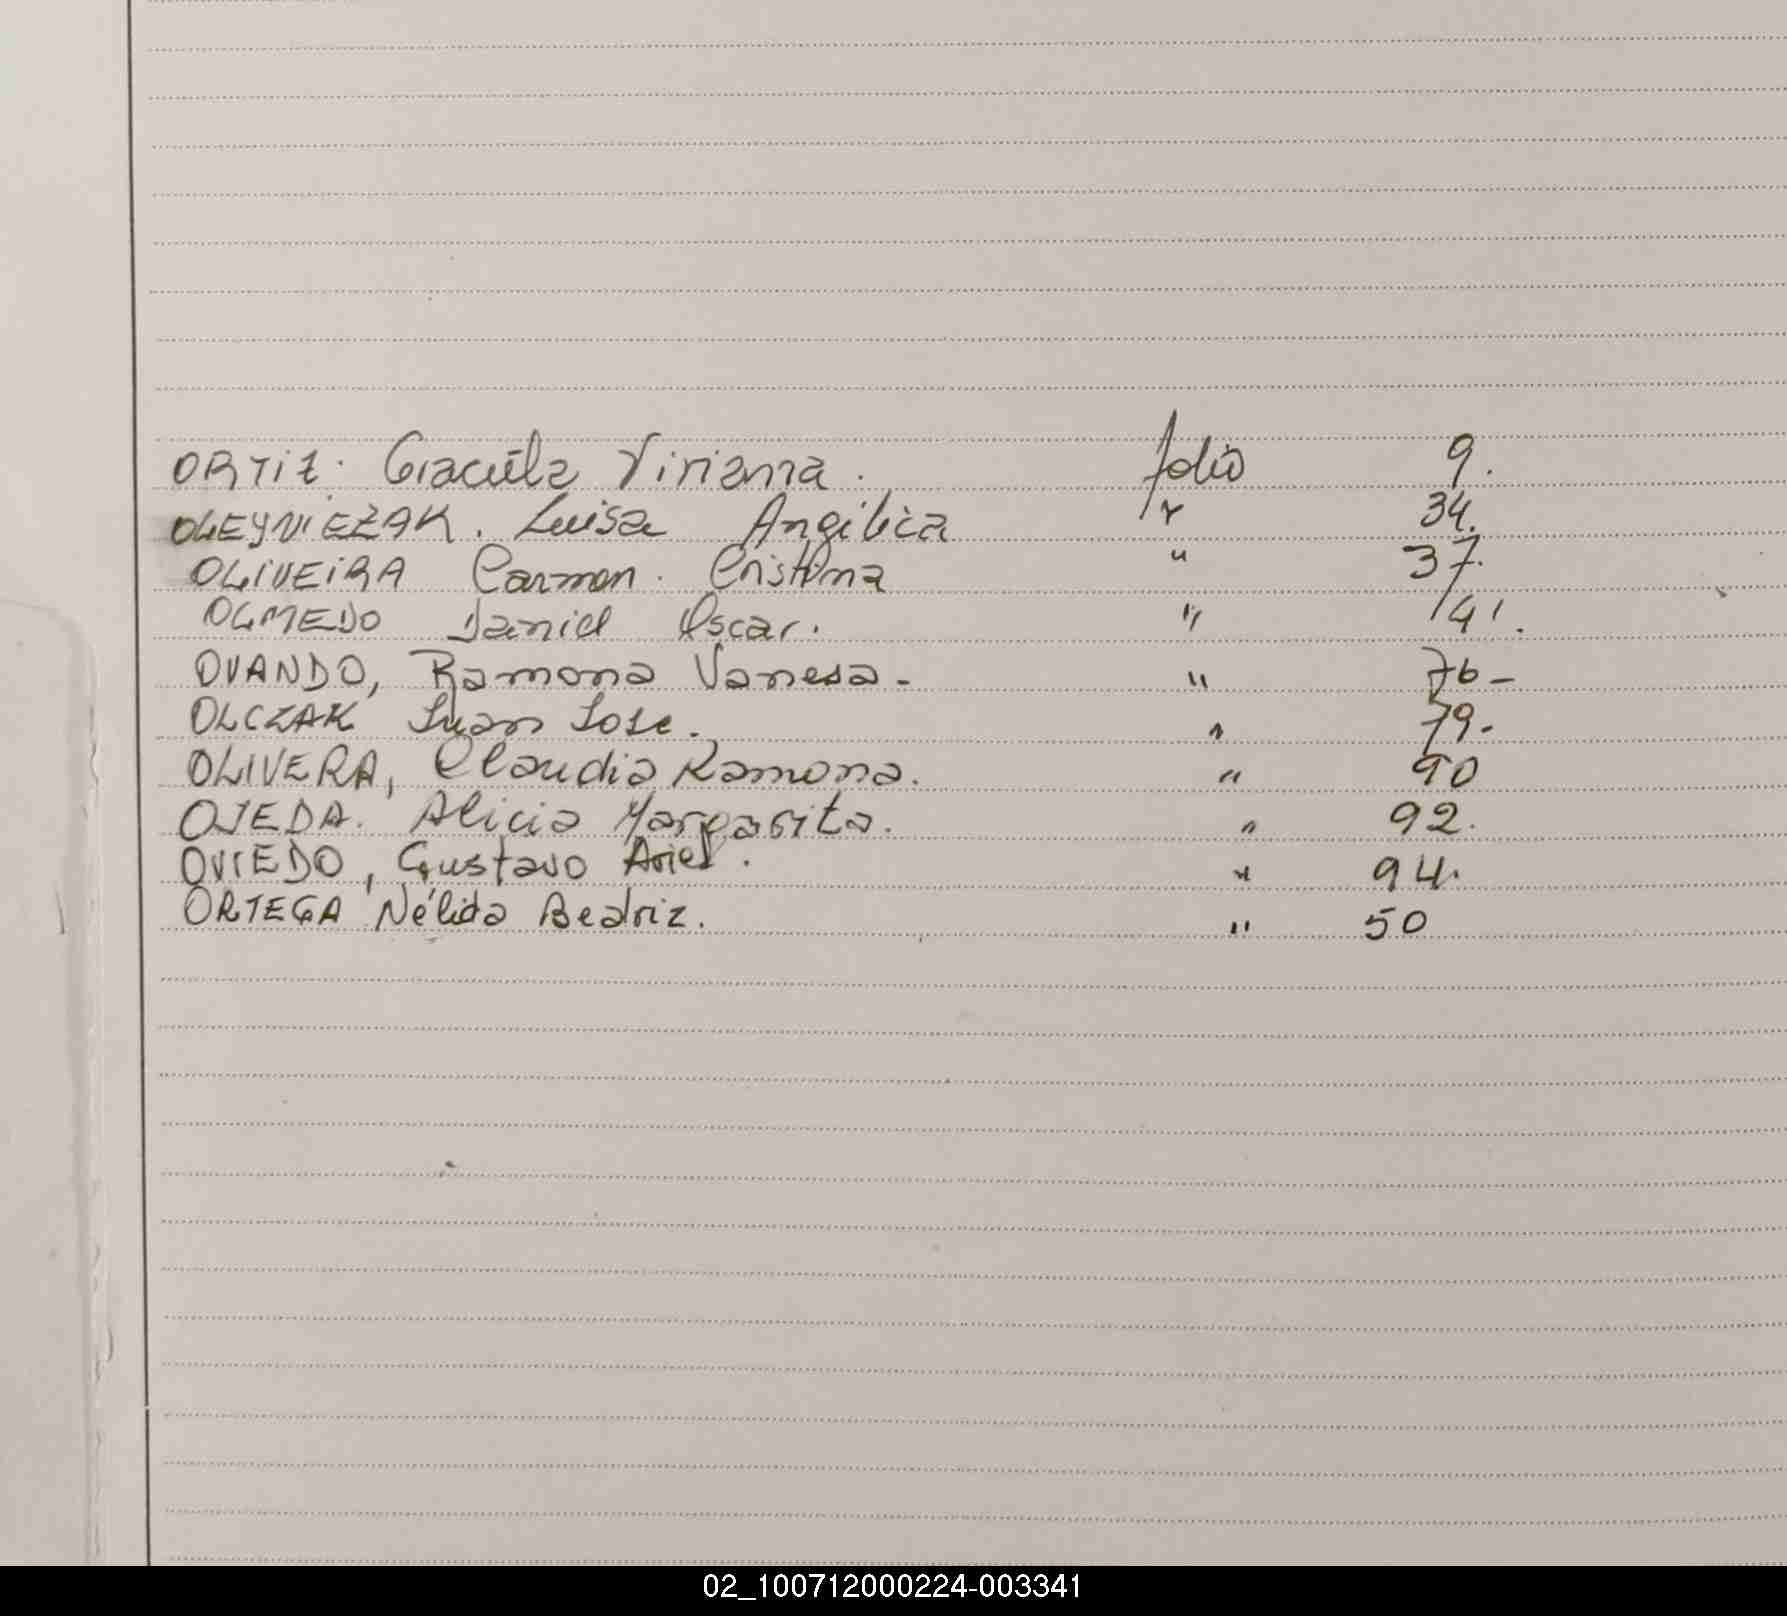 ORTIZ. Graciela Viviana. folio 9.
OLEYNIEZAK. Luisa Angélica " 34.
OLIVEIRA Carmen. Cristina " 37.
OLMEDO Daniel Oscar. " 41.
OVANDO, Ramona Vanesa - " 76 -
OLCZAK Juan Jose. " 79.-
OLIVERA, Claudia Ramona. " 90
OJEDA. Alicia Margarita. " 92.
OVIEDO, Gustavo Ariel. " 94.
ORTEGA Nélida Beatriz. " 50
02_100712000224-003341